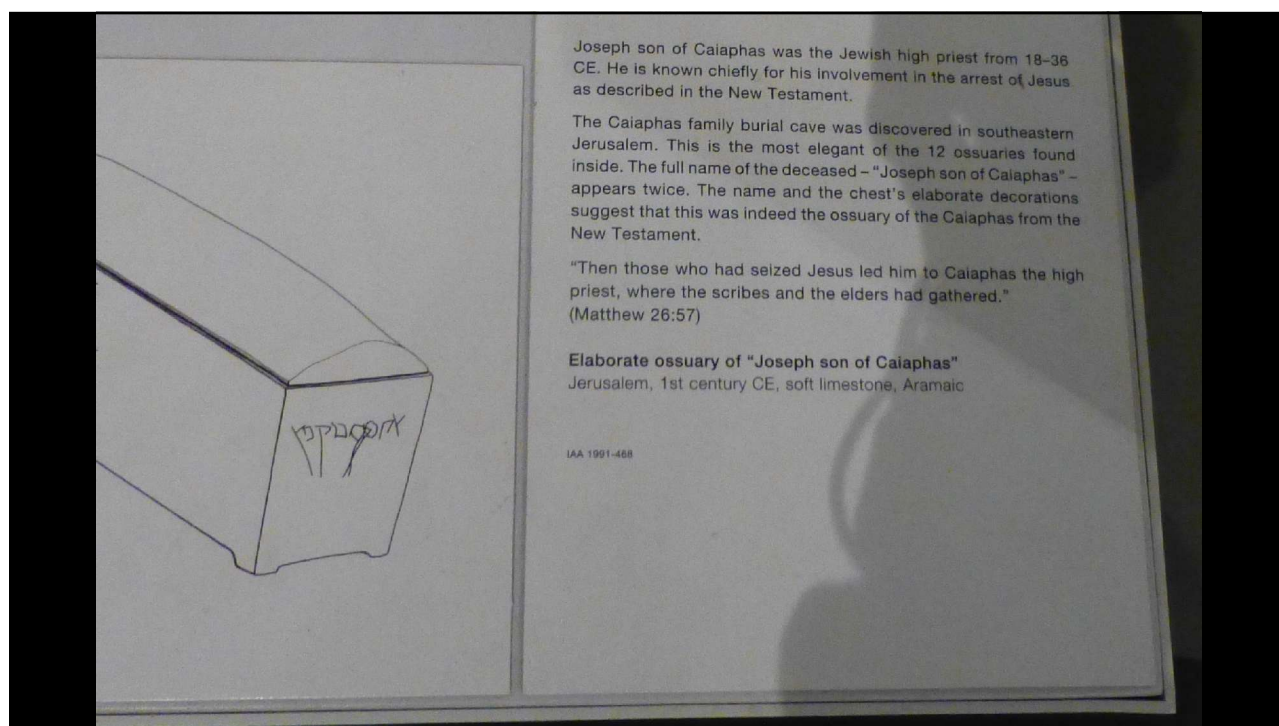 Joseph son of Caiaphas was the Jewish high priest from 18–36
CE. He is known chiefly for his involvement in the arrest of Jesus
as described in the New Testament.
The Caiaphas family burial cave was discovered in southeastern
Jerusalem. This is the most elegant of the 12 ossuaries found
inside. The full name of the deceased – “Joseph son of Caiaphas” –
appears twice. The name and the chest's elaborate decorations
suggest that this was indeed the ossuary of the Caiaphas from the
New Testament.
“Then those who had seized Jesus led him to Caiaphas the high
priest, where the scribes and the elders had gathered.”
(Matthew 26:57)
Elaborate ossuary of “Joseph son of Caiaphas”
Jerusalem, 1st century CE, soft limestone, Aramaic
IAA 1991-468